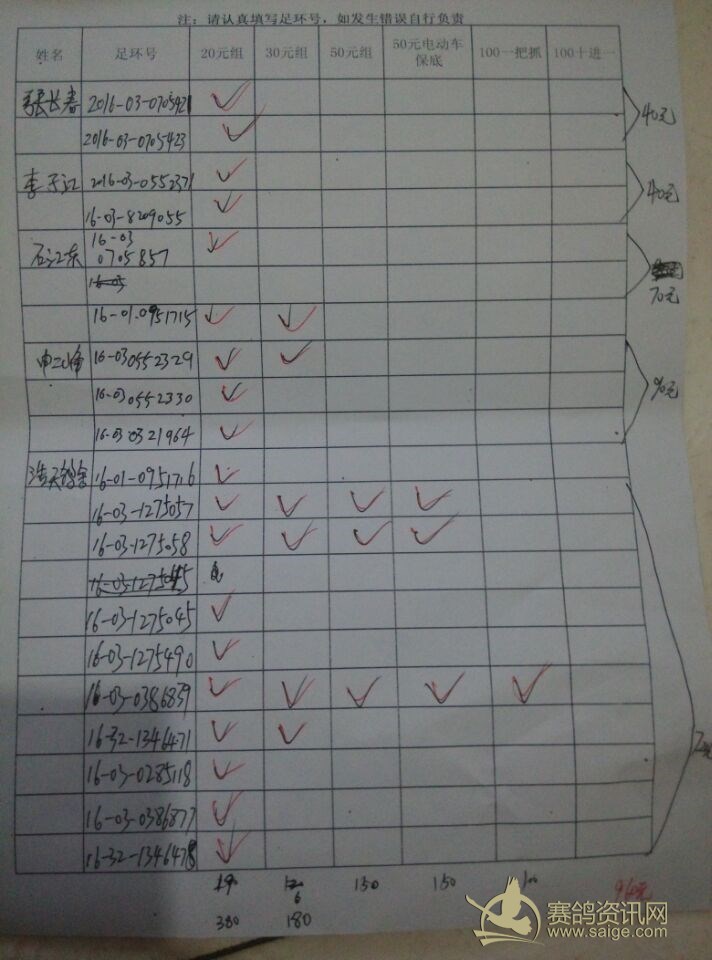 注：请认真填写足环号，如发生错误自行负责
姓名 足环号 20元组 30元组 50元组 50元电动车保底 100一把抓 100十进一
张长春 2016-03-0705421 ✓ 40元
2016-03-0705423 ✓
李子江 2016-03-0552371 ✓ 40元
16-03-8209055 ✓
石江东 16-03 0705857 ✓ 70元
16-03
16-01-0951715 ✓ ✓
16-03 0552329 ✓ ✓ 90元
16-03 0552330 ✓
16-03 0321964 ✓
16-01-0951716 ✓
16-03-1275057 ✓ ✓ ✓ ✓
16-03-1275058 ✓ ✓ ✓ ✓
16-03-1275045
16-03-1275045 ✓
16-03-1275490 ✓
16-03-0386839 ✓ ✓ ✓ ✓ ✓
16-32-1346471 ✓ ✓
16-03-0285118 ✓
16-03-0386877 ✓
16-32-1346478 ✓
150 150 100
6
380 180
960元
赛鸽资讯网
www.saige.com